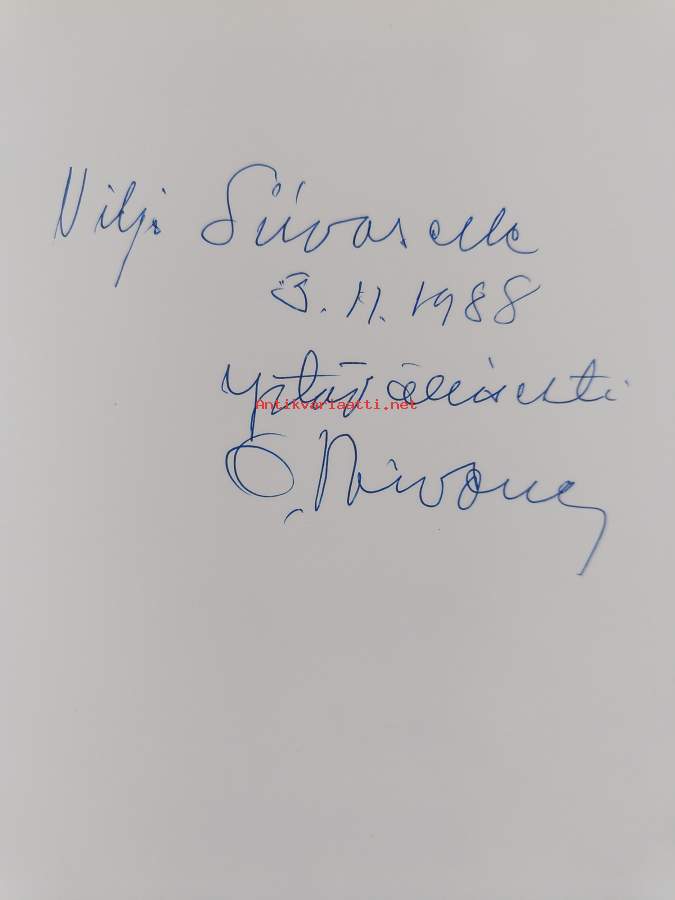 Vilji Siivoselle
3.11.1988
ystävällisesti
Antikvariaatti.net
O.